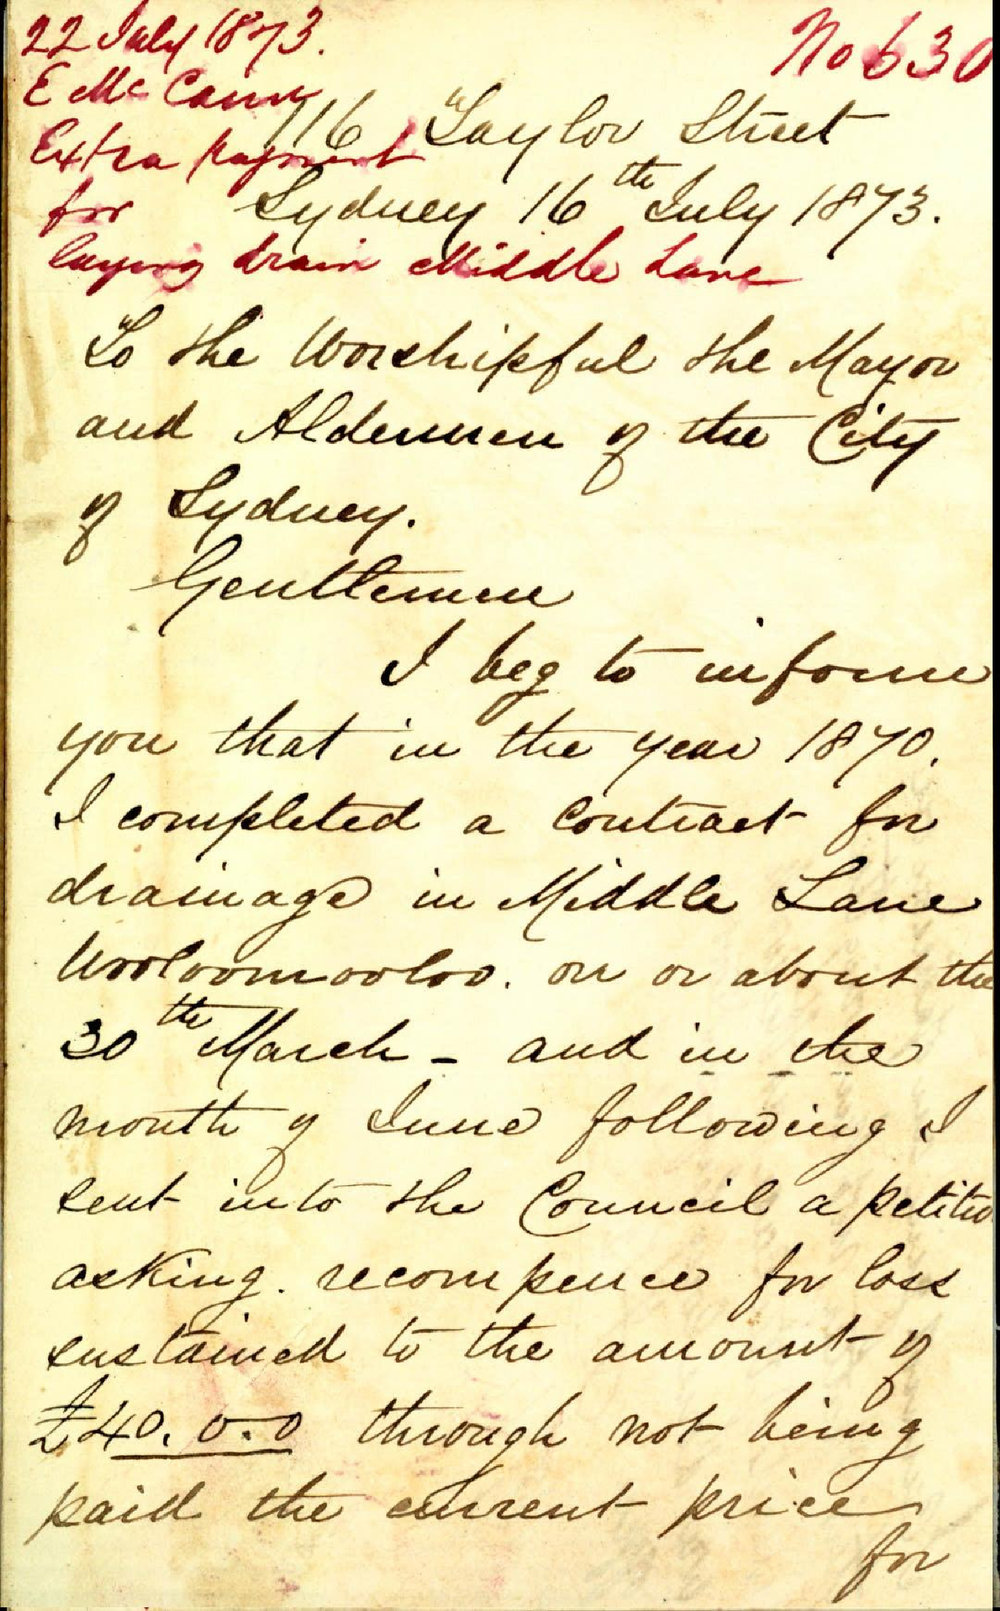 22 July 1873.
No 630
E Mc Cann
116 Taylor Street
Extra payment
for
Sydney 16th July 1873.
laying drain Middle Lane
To the Worshipful the Mayor
and Aldermen of the City
of Sydney.
Gentlemen
I beg to inform
you that in the year 1870.
I completed a contract for
drainage in Middle Lane
Wooloomooloo. on or about the
30th March - and in the
month of June following I
sent into the Council a petitio
asking. recompence for loss
sustained to the amount of
£40. 0. 0 through not being
paid the current price
for